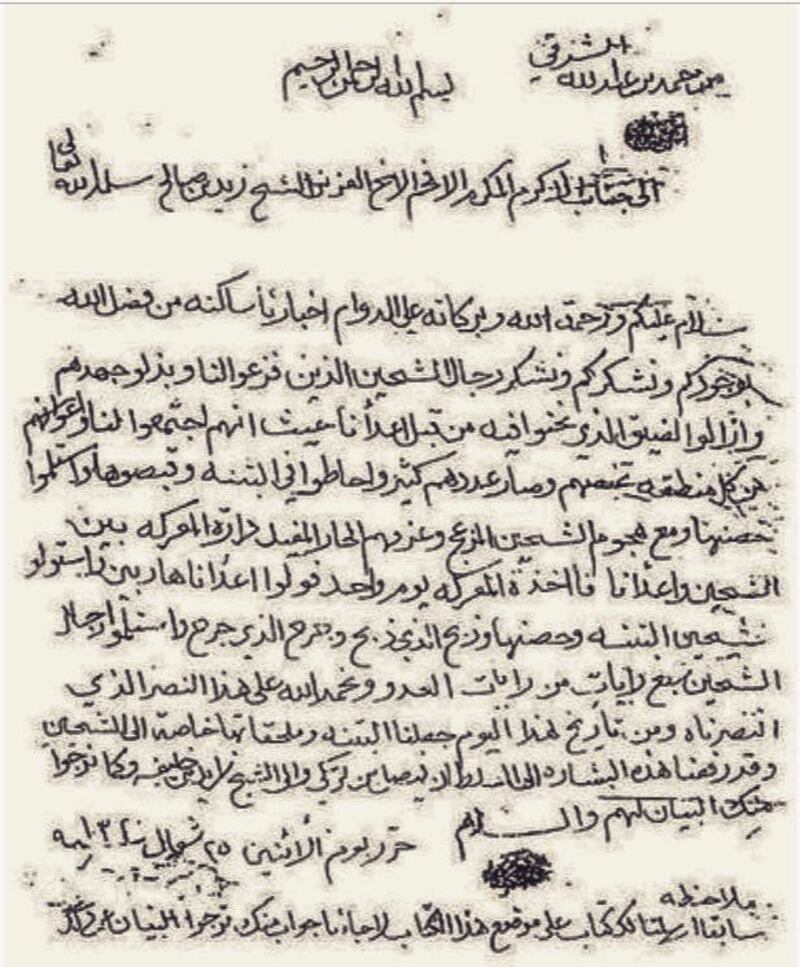 بسم الله الرحمن الرحيم
من محمد بن عبد الله
الشرقي
الى جناب الاكرم المكرم الافخم الاخ العزيز الشيخ زيد بن صالح سلمه الله تعالى
سلام عليكم ورحمة الله وبركاته على الدوام اخبارنا ساكنه من فضل الله
بوجودكم ونشكركم ونشكر رجال الشحيين الذين فزعوا لنا وبذلو جهدهم
وازالوا الضيق الذي نحنوا فيه من قبل اعدأنا حيث انهم اجتمعوا لنا واعوانهم
من كل منطقه وصار عددهم كثير واحاطوا في البثنه وقبضوها واستلموا
حصنها ومع هجوم الشحيين المزعج وعزمهم الحار دارة المعركه بين
الشحيين واعدأنا فأاخذة المعركه يوم واحد فولوا اعدأنا هاربين واستولو
شحيين البثنه وحصنها وذبح الذي ذبح وجرح الذي جرح واستلموا رجال
الشحيين سبع رايات من رايات العدو ونحمد الله على هذا النصر الذي
انتصرناه ومن تاريخ هذا اليوم جعلنا البثنه وملحقاتها خاصة الى الشحيين
وقد رفعنا هذه البشاره الى السلطان بن تركي والى الشيخ زايد بن خليفه وكما نرجوا
منك البيان لهم والسلام
حرر يوم الأثنين ٢٥ شوال
ملاحظه
سابقا ارسلنا لك كتاب على موضع هذا الكتاب لا جاءنا جواب منك نرجوا البيان